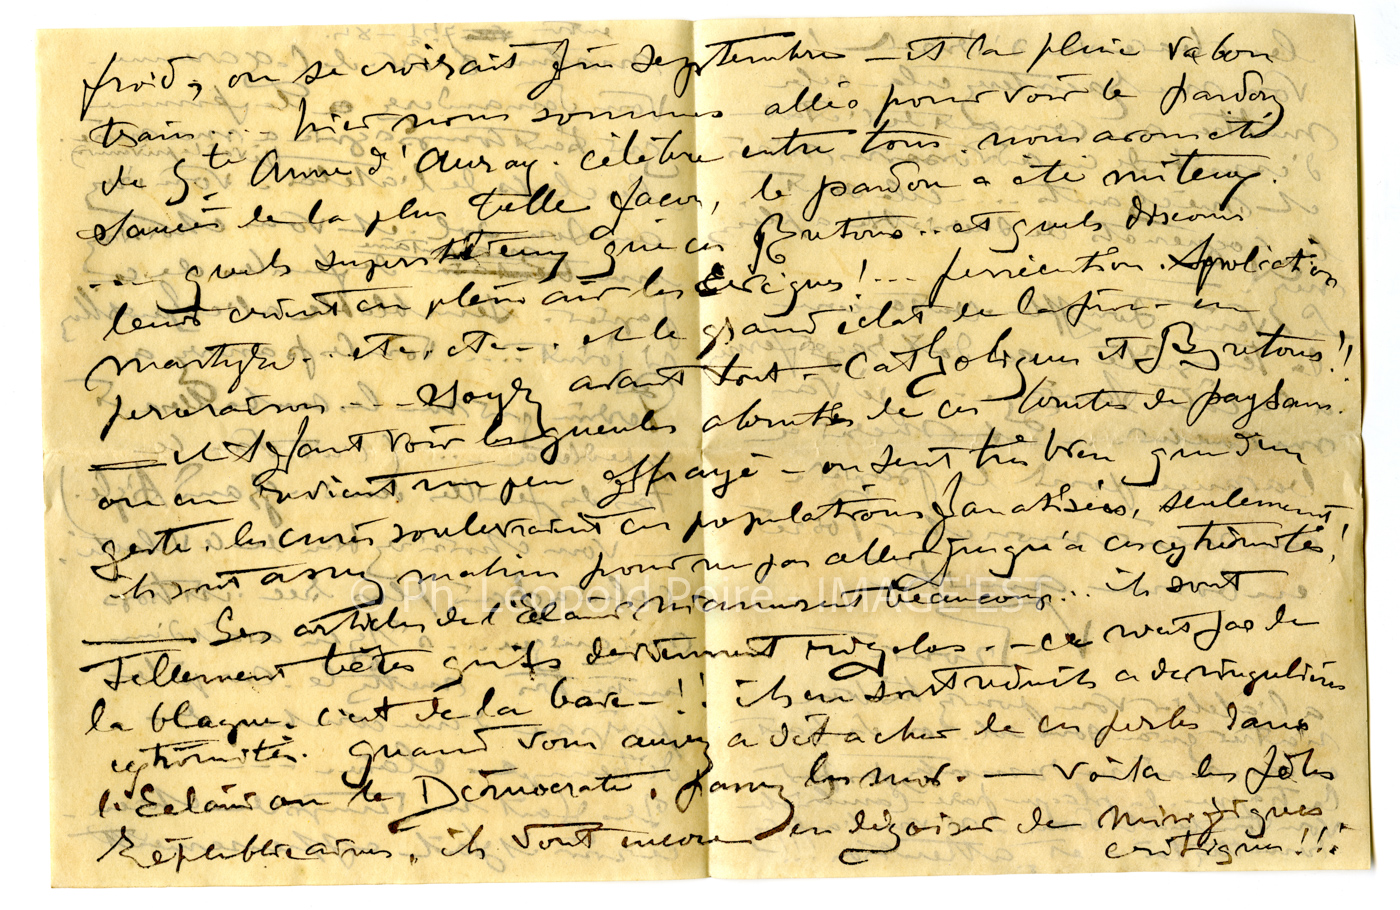 froid, on se croirait fin septembre — et la pluie va bon
train... — hier nous sommes allés pour voir le pardon
de Ste Anne d'Auray. célèbre entre tous. nous avons été
saucés de la plus belle façon, le pardon a été miteux.
... quels superstitieux que ces Bretons... et quels discours
leur crient en plein air les Evêques! ... persécution. Spoliation
martyrs.. etc. etc.. . et le grand éclat de la fin — en
peroraison... — Soyez avant tout — Catholiques et Bretons!!
— et il faut voir les gueules abruties de ces brutes de paysans.
on en revient un peu effrayé — on sent très bien que d'un
geste. les curés souleveraient ces populations fanatisées, seulement
ils sont assez malins pour ne pas aller jusqu'à ces extrémités!
© Ph. Léopold Poiré - IMAGE'EST
— Les articles de l'Eclair m'amusent beaucoup... ils sont
tellement bêtes qu'ils deviennent rigolos. . — ce n'est pas de
la blague. c'est de la bave — !! ils en sont réduits a de singulières
extrémités. quand vous aurez a détacher de ces perles dans
l'Eclair ou le Démocrate, passez les moi. — Voila les fêtes
Républicaines, ils vont encore en dégoiser de mirifiques
critiques!!!